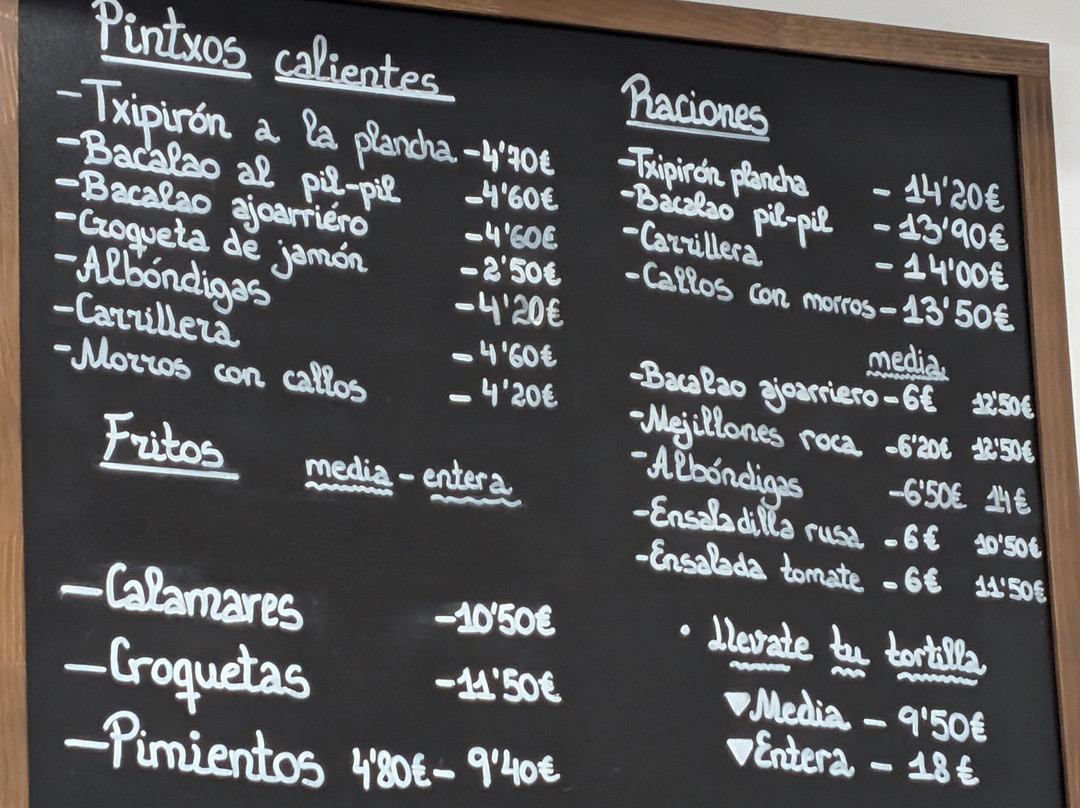 Pintxos calientes
- Txipirón a la plancha - 4'70€
- Bacalao al pil-pil - 4'60€
- Bacalao ajoarriéro - 4'60€
- Croqueta de jamón - 2'50€
- Albóndigas - 4'20€
- Carrillera - 4'60€
- Morros con callos - 4'20€
Fritos media - entera
- Calamares - 10'50€
- Croquetas - 11'50€
- Pimientos 4'80€ - 9'40€
Raciones
- Txipirón plancha - 14'20€
- Bacalao pil-pil - 13'90€
- Carrillera - 14'00€
- Callos con morros - 13'50€
media
- Bacalao ajoarriero - 6€ 12'50€
- Mejillones roca - 6'20€ 12'50€
- Albóndigas - 6'50€ 14€
- Ensaladilla rusa - 6€ 10'50€
- Ensalada tomate - 6€ 11'50€
• Llevate tu tortilla
▼Media - 9'50€
▼Entera - 18€